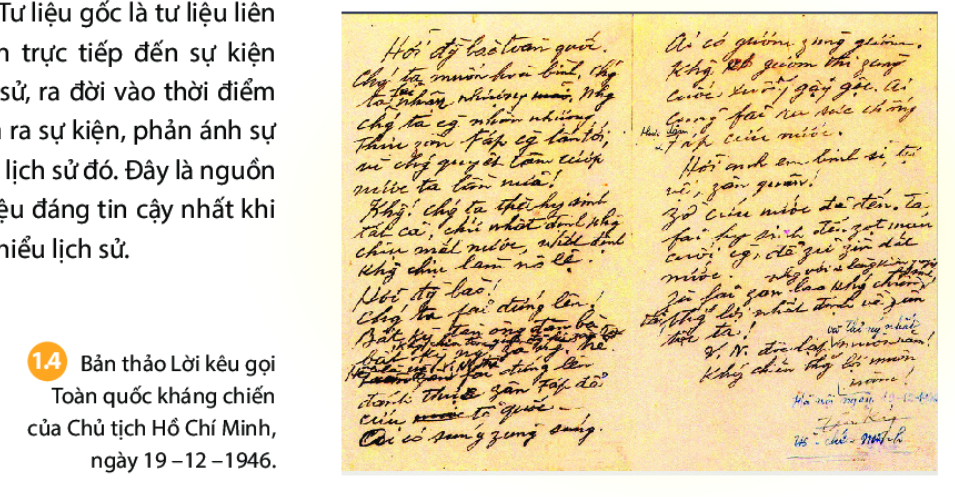 Tư liệu gốc là tư liệu liên
n trực tiếp đến sự kiện
sử, ra đời vào thời điểm
ra sự kiện, phản ánh sự
lịch sử đó. Đây là nguồn
ệu đáng tin cậy nhất khi
hiểu lịch sử.
1.4 Bản thảo Lời kêu gọi
Toàn quốc kháng chiến
của Chủ tịch Hồ Chí Minh,
ngày 19 –12 –1946.
Hỡi đg bào toàn quốc.
Chg ta muốn hoà bình, chg
ta nhân nhượng. Nhg
chg ta cg nhân nhượng
thực zân Fáp cg lấn tới,
vì chg quyết tâm cướp
nước ta lần nữa!
Khg! chg ta thà hy sinh
tất cả, chứ nhất định khg
chịu mất nước, nhất định
khg chịu làm nô lệ.
Hỡi đg bào!
Chg ta fải đứng lên!
Bất kỳ đàn ông đàn bà
bất kỳ
fải đứng lên
đánh thực zân Fáp để
cứu tổ quốc –
Ai có súng zùng súng.
Ai có gươm zùng gươm.
Khg có gươm thì zùng
cuốc xuổng gậy gộc. Ai
cũng fải ra sức chống
Fáp cứu nước.
Hỡi anh em binh sĩ, tự
vệ, zân quân!
Zờ cứu nước đã đến. Ta
fải hy sinh đến zọt máu
cuối cg, để zữ zìn đất
nước.
Zù fải zan lao khg chiến
thg lợi nhất định về zân
tộc ta!
V. N. độc lập muôn năm!
Khg chiến thg lợi muôn
năm!
Hà nội ngày 19-12-1946
Hồ - chí - Minh